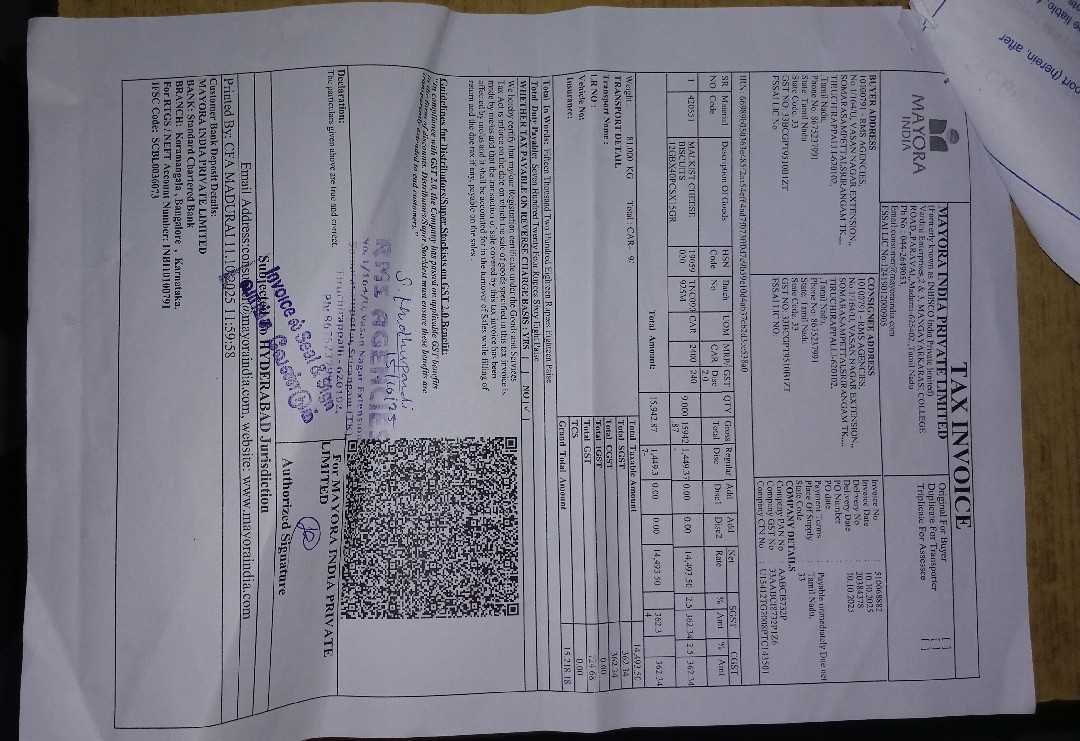 TAX INVOICE
Original For Buyer [ ]
Duplicate For Transporter [ ]
Triplicate For Assessee [ ]
MAYORA
INDIA
MAYORA INDIA PRIVATE LIMITED
(Formerly known as INBISCO India Private limited)
Vardhai Enterprises, 2 & 3, MANGAYARKARASI COLLEGE
ROAD, PARAVAI, Madurai-625402, Tamil Nadu
Ph No : 044-2649053
Email:consumer@mayoraindia.com
BUYER ADDRESS
10100791 - RMS AGENCIES,
No.1/164/U, VASAN NAGAR EXTENSION,,
SOMARASAMPETTAI,SRIRANGAM TK,,,,
TIRUCHIRAPPALLI-620102,
Tamil Nadu,
Phone No 8675237991
State Tamil Nadu
State Code. 33
FSSAI LIC No
CONSIGNEE ADDRESS
10100791 - RMS AGENCIES,
No.1/164/U, VASAN NAGAR EXTENSION,,
SOMARASAMPETTAI,SRIRANGAM TK,,,,
TIRUCHIRAPPALLI-620102,
Tamil Nadu,
Phone No 8675237991
State. Tamil Nadu
State Code. 33
FSSAI LIC NO.
Invoice No : 510068882
Invoice Date : 10.10.2025
Delivery No : 20384378
Delivery Date : 10.10.2025
PO Number :
PO Date :
Payment Terms : Payable immediately Due net
Place Of Supply : Tamil Nadu,
State Code : 33
COMPANY DETAILS
Company PAN No : AABCI8732P
Company GST No : 33AABCI8732P1Z6
SR NO Material Code Description Of Goods HSN Code Batch No LOM CAR MRP/ CAR GST Disc 2.0 QTY Gross Total Regular Disc Add Disc1 Add Disc2 Net Rate SGST % Amt CGST % Amt
1 420551 MALKIST CHEESE BISCUITS 2400 240 9.000 15942.87 1,449.37 0.00 0.00 14,493.50 2.5 362.34 2.5 362.34
Total Amount: 15,942.87 1,449.37 0.00 0.00 14,493.50 362.34 362.34
Weight 81.000 KG Total -CAR- 9/
TRANSPORT DETAIL
Transport Name :
LR NO :
Vehicle No:
Insurance:
Total Taxable Amount 14,493.50
Total SGST 362.34
Total CGST 362.34
Total IGST 0.00
Total GST 724.68
TCS 0.00
Grand Total Amount 15,218.18
Total In Words: Fifteen Thousand Two Hundred Eighteen Rupees Eighteen Paise
Total Duty Payable: Seven Hundred Twenty Four Rupees Sixty Eight Paise
WHETHER TAX PAYABLE ON REVERSE CHARGE BASIS : YES [ ] NO [√]
We hereby certify that my/our Registration certificate under the Goods and Services
Tax Act is in force on the date on which the sale of goods specified in this tax invoice is
made by me/us and that the transaction of sale covered by this tax invoice has been
effected by me/us and it shall be accounted for in the turnover of Sales while filling of
return and the due tax if any, payable on the sales
Guidelines for Distributors/Super Stockists on GST 2.0 Benefit:
"In compliance with GST 2.0, the Company has passed on applicable GST benefits
S. Muthupandi
15/10/25
RMS AGENCIES
No. 1/164/U, Vasan Nagar Extension
Declaration:
The particulars given above are true and correct
For MAYORA INDIA PRIVATE
LIMITED
Authorized Signature
Invoice with Seal & Sign
Subjected To HYDERABAD Jurisdiction
Email Address:consumer@mayoraindia.com, website: www.mayoraindia.com
Printed By: CFA_MADURAI 11.10.2025 11:59:58
Customer Bank Deposit Details:
MAYORA INDIA PRIVATE LIMITED
BANK: Standard Chartered Bank
BRANCH: Koramangala, Bangalore , Karnataka.
For RTGS / NEFT Account Number: INBI10100791
IFSC Code: SCBL0036073